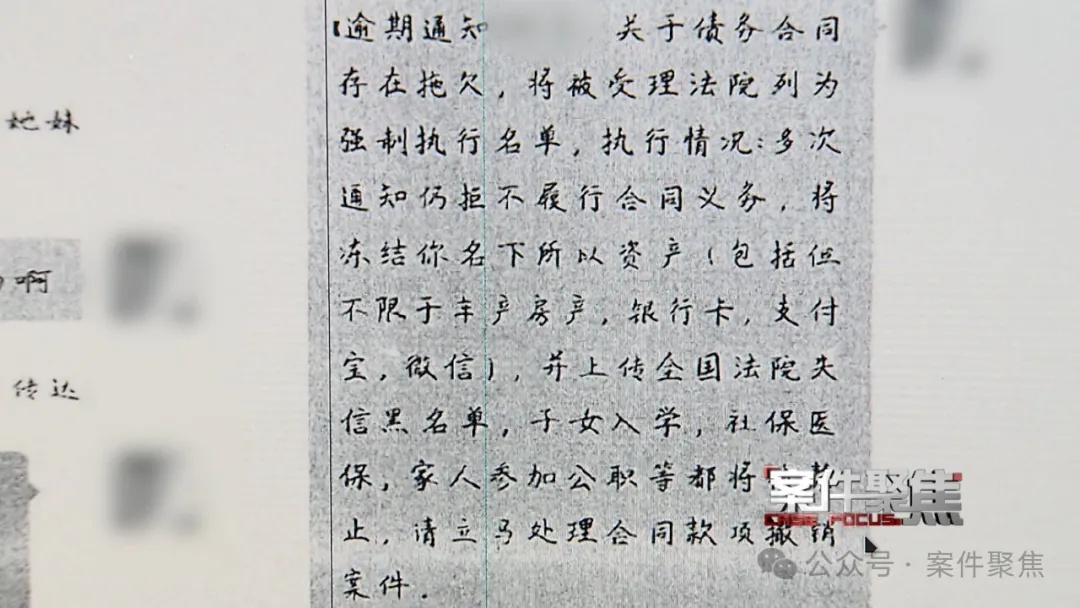 【逾期通知 关于债务合同
存在拖欠，将被受理法院列为
强制执行名单，执行情况：多次
通知仍拒不履行合同义务，将
冻结你名下所以资产（包括但
不限于车产房产，银行卡，支付
宝，微信），并上传全国法院失
信黑名单，子女入学，社保医
保，家人参加公职等都将
止，请立马处理合同款项撤销
案件.
她妹
啊
传达
案件聚焦
CASE FOCUS
公众号·案件聚焦